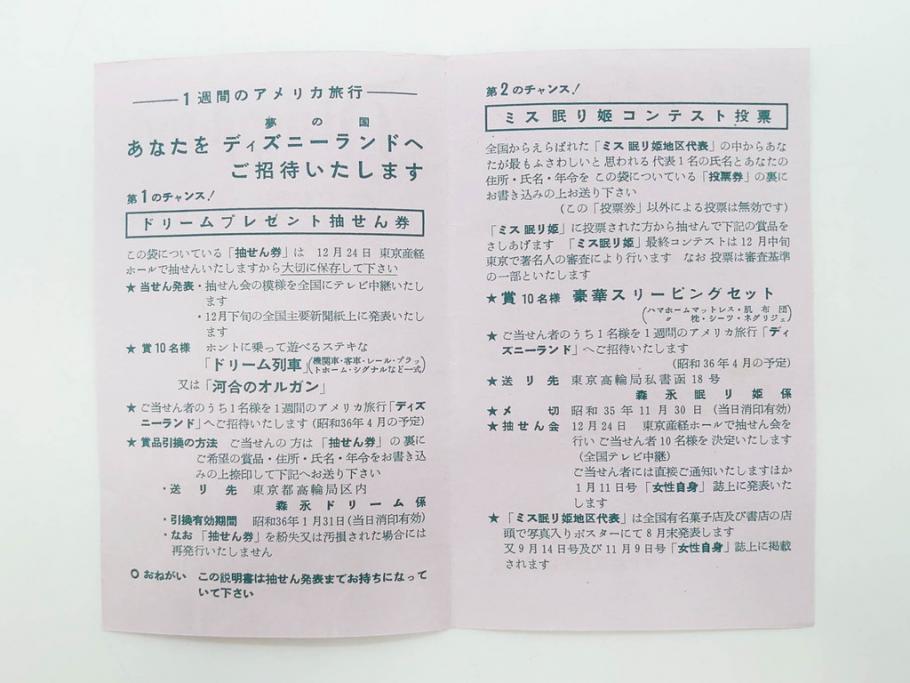 1週間のアメリカ旅行
夢の国
あなたを ディズニーランドへ
ご招待いたします
第1のチャンス!
ドリームプレゼント抽せん券
この袋についている「抽せん券」は 12月24日 東京産経
ホールで抽せんいたしますから大切に保存して下さい
★ 当せん発表・抽せん会の模様を全国にテレビ中継いたし
ます
・12月下旬の全国主要新聞紙上に発表いたし
ます
★ 賞10名様 ホントに乗って遊べるステキな
「ドリーム列車」(機関車・客車・レール・プラッ
トホーム・シグナルなど一式)
又は「河合のオルガン」
★ ご当せん者のうち1名様を1週間のアメリカ旅行「ディズ
ニーランド」へご招待いたします(昭和36年4月の予定)
★ 賞品引換の方法 ご当せんの方は「抽せん券」の裏に
ご希望の賞品・住所・氏名・年令をお書き込
みの上捺印して下記へお送り下さい
・送り先 東京都高輪局区内
森永ドリーム係
・引換有効期間 昭和36年1月31日(当日消印有効)
・なお「抽せん券」を紛失又は汚損された場合には
再発行いたしません
○ おねがい この説明書は抽せん発表までお持ちになって
いて下さい
第2のチャンス!
ミス眠り姫コンテスト投票
全国からえらばれた「ミス眠り姫地区代表」の中からあな
たが最もふさわしいと思われる代表1名の氏名とあなたの
住所・氏名・年令を この袋についている「投票券」の裏に
お書き込みの上お送り下さい
(この「投票券」以外による投票は無効です)
「ミス眠り姫」に投票された方から抽せんで下記の賞品を
さしあげます 「ミス眠り姫」最終コンテストは12月中旬
東京で著名人の審査により行います なお投票は審査基準
の一部といたします
★ 賞10名様 豪華スリーピングセット
(ハマホームマットレス・肌布団
〃 枕・シーツ・ネグリジェ)
★ ご当せん者のうち1名様を1週間のアメリカ旅行「ディ
ズニーランド」へご招待いたします
(昭和36年4月の予定)
★ 送り先 東京高輪局私書函18号
森永眠り姫係
★ 〆切 昭和35年11月30日(当日消印有効)
★ 抽せん会 12月24日 東京産経ホールで抽せん会を
行いご当せん者10名様を決定いたします
(全国テレビ中継)
ご当せん者には直接ご通知いたしますほか
1月11日号「女性自身」誌上に発表いた
します
★ 「ミス眠り姫地区代表」は全国有名菓子店及び書店の店
頭で写真入りポスターにて8月末発表します
又9月14日号及び11月9日号「女性自身」誌上に掲載
されます